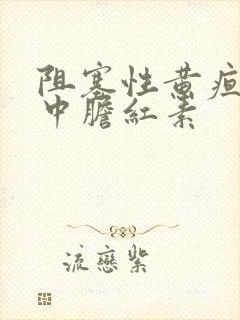 阻塞性黄疸
中膽紅素
流戀紫